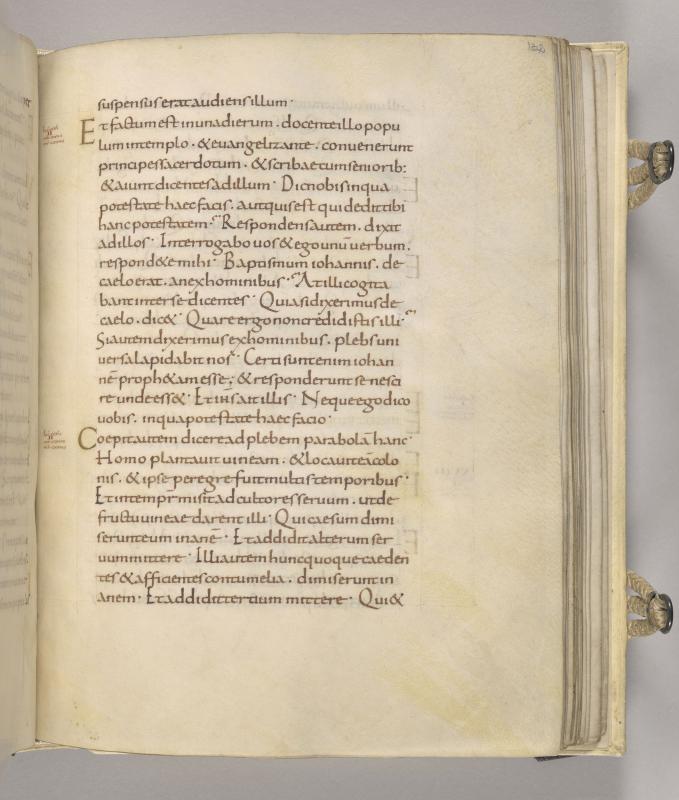 suspensus erat audiens illum.
Et factum est in una dierum. docente illo popu
lum in templo. & euangelizante. conuenerunt
principes sacerdotum. & scribae cum seniorib:
& aiunt dicentes ad illum. Dic nobis in qua
potestate haec facis. aut quis est qui dedit tibi
hanc potestatem. Respondens autem. dixit
ad illos. Interrogabo uos & ego unū uerbum.
respond&e mihi. Baptismum iohannis. de
caelo erat. an ex hominibus. At illi cogita
bant inter se dicentes. Quia si dixerimus de
caelo. dic&. Quare ergo non credidistis illi.
Si autem dixerimus ex hominibus. plebs uni
uersa lapidabit nos. Certi sunt enim iohan
nē proph&am esse; & responderunt se nesci
re unde ess&. Et ihs ait illis. Neque ego dico
uobis. in qua potestate haec facio.
Coepit autem dicere ad plebem parabolā hanc.
Homo plantauit uineam. & locauit eā colo
nis. & ipse peregre fuit multis temporibus.
Et in tempr misit ad cultores seruum. ut de
fructu uineae darent illi. Qui caesum dimi
serunt eum inanē. Et addidit alterum ser
uum mittere. Illi autem hunc quoque caeden
tes & afficientes contumelia. dimiserunt in
anem. Et addidit tertium mittere. Qui &